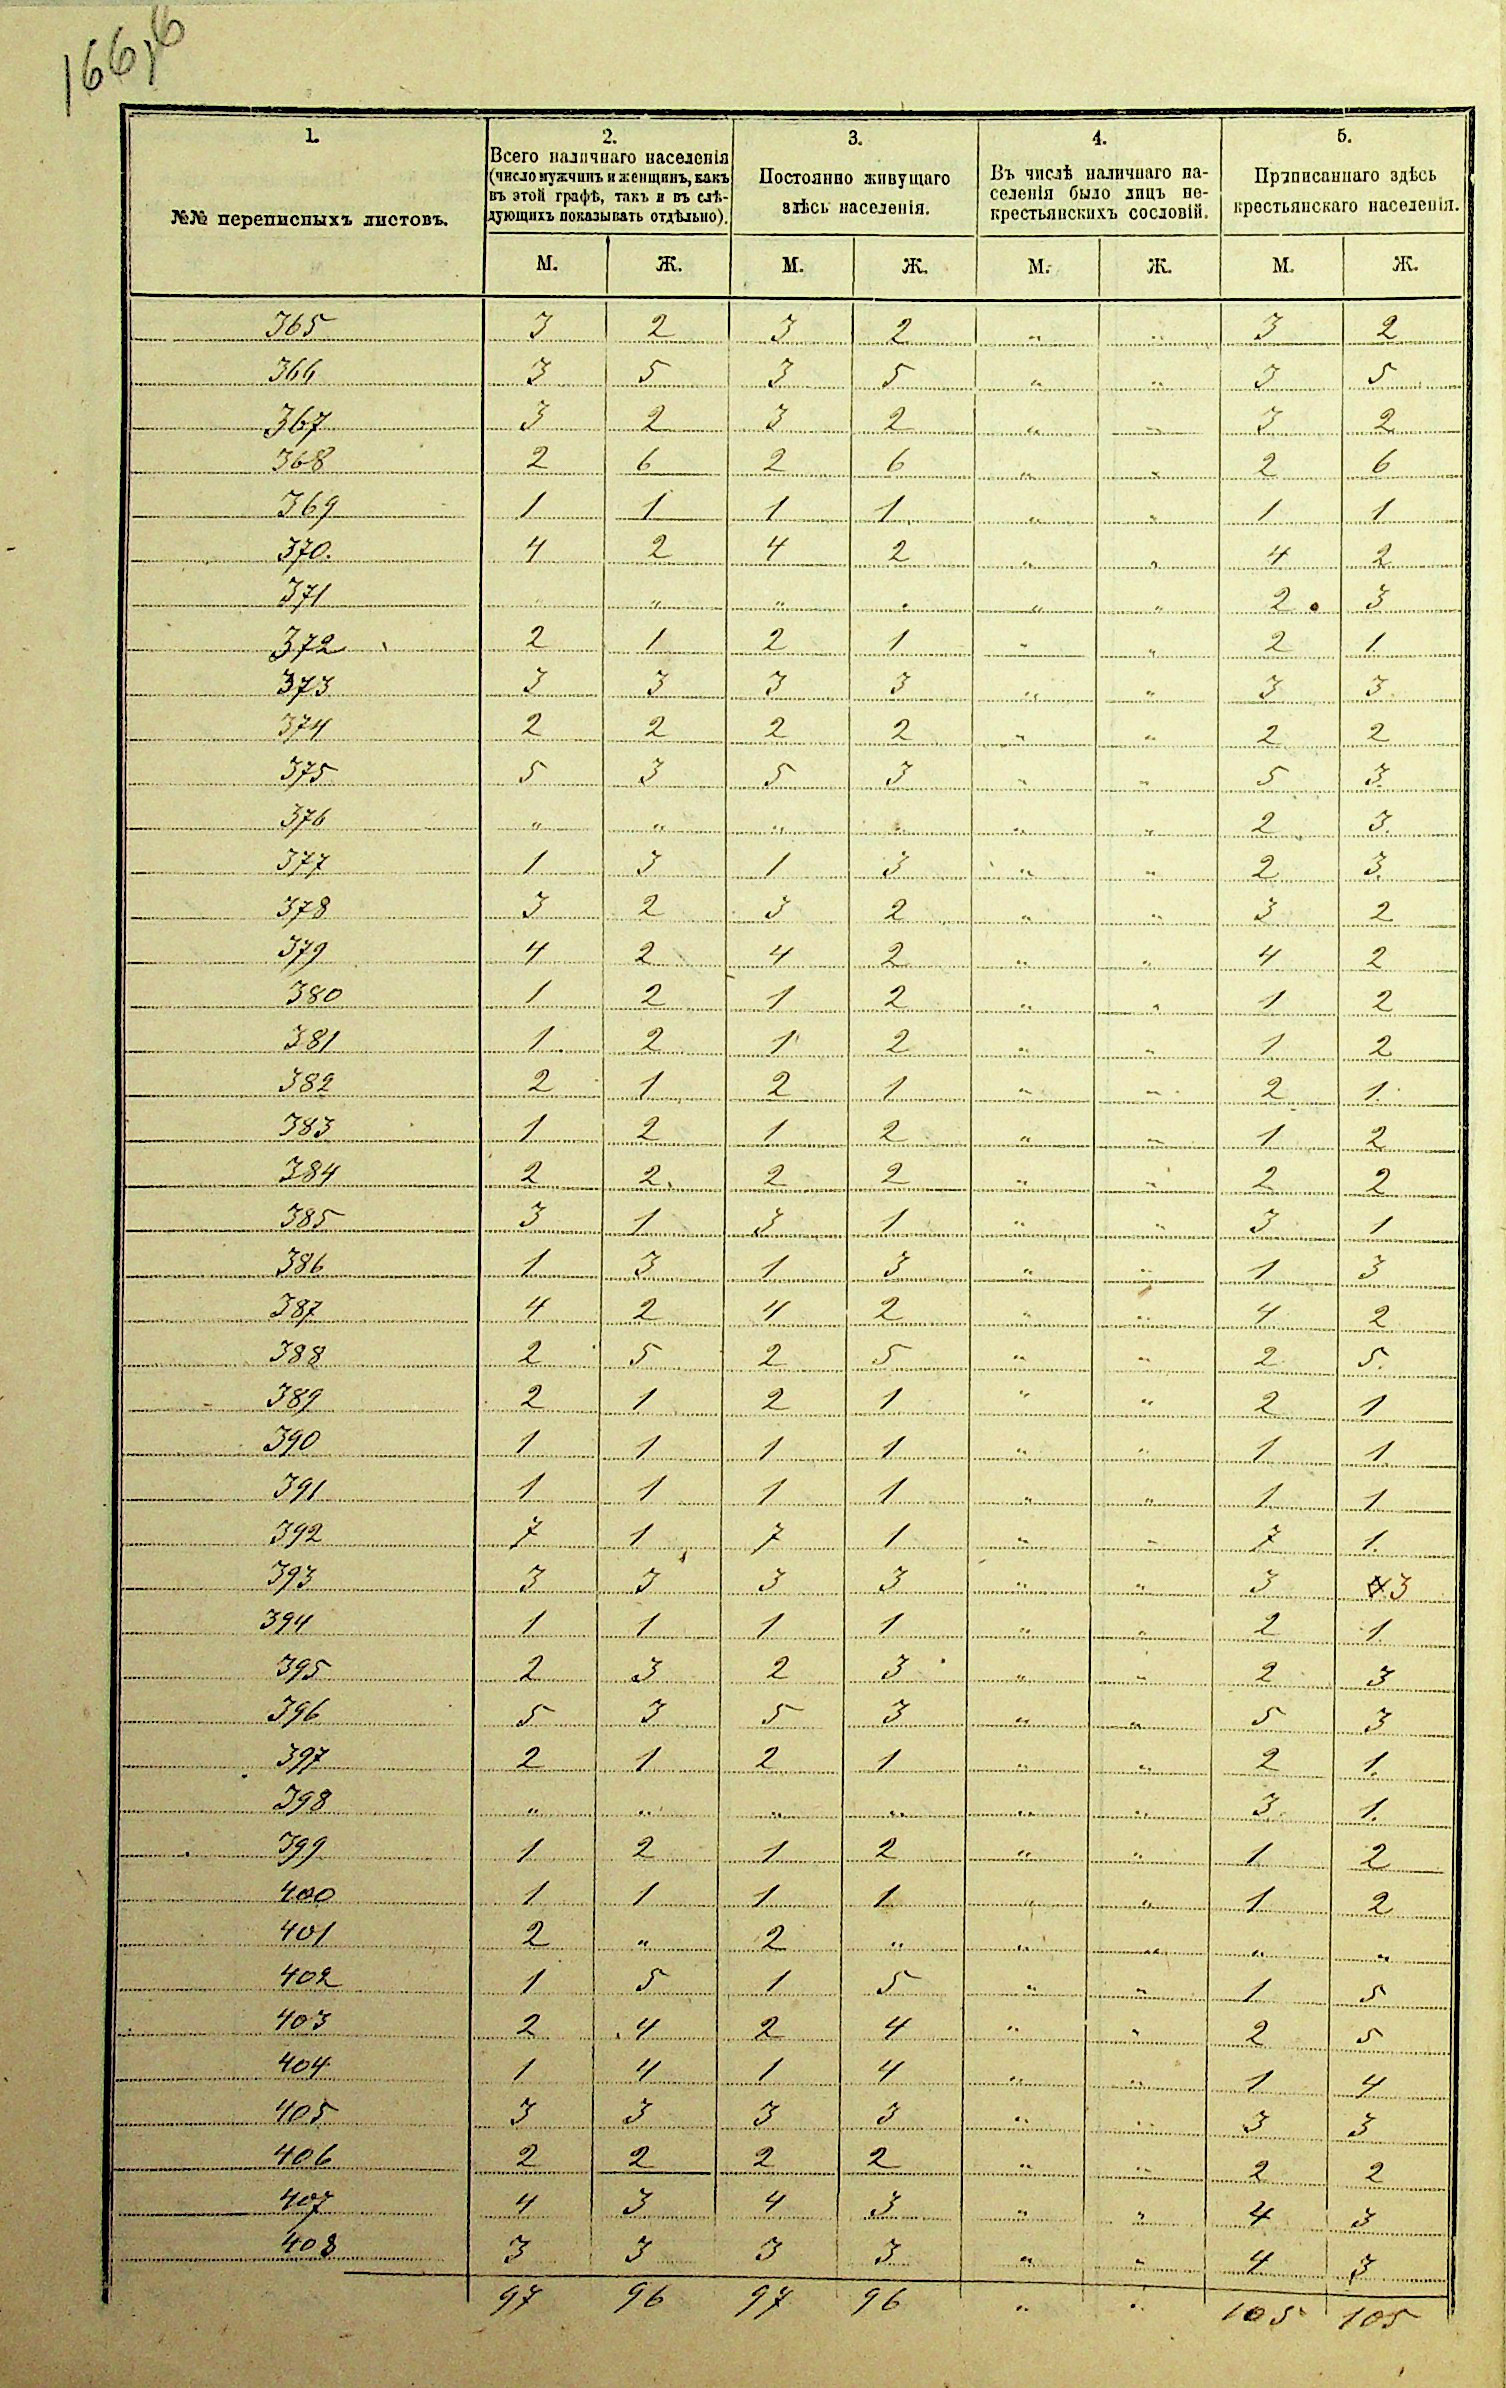 166,6
1. 2. 3. 4. 5.
№№ переписныхъ листовъ.
Всего наличнаго населенія
(число мужчинъ и женщинъ, какъ
въ этой графѣ, такъ и въ слѣ-
дующихъ показывать отдѣльно).
Постоянно живущаго
здѣсь населенія.
Въ числѣ наличнаго на-
селенія было лицъ не-
крестьянскихъ сословій.
Приписаннаго здѣсь
крестьянскаго населенія.
М. Ж. М. Ж. М. Ж. М. Ж.
365 3 2 3 2 " " 3 2
366 3 5 3 5 " " 3 5
367 3 2 3 2 " " 3 2
368 2 6 2 6 " " 2 6
369 1 1 1 1 " " 1 1
370. 4 2 4 2 " " 4 2
371 " " " " " " 2 3
372 2 1 2 1 " " 2 1
373 3 3 3 3 " " 3 3
374 2 2 2 2 " " 2 2
375 5 3 5 3 " " 5 3
376 " " " " " " 2 3
377 1 3 1 3 " " 2 3
378 3 2 3 2 " " 3 2
379 4 2 4 2 " " 4 2
380 1 2 1 2 " " 1 2
381 1 2 1 2 " " 1 2
382 2 1 2 1 " " 2 1
383 1 2 1 2 " " 1 2
384 2 2 2 2 " " 2 2
385 3 1 3 1 " " 3 1
386 1 3 1 3 " " 1 3
387 4 2 4 2 " " 4 2
388 2 5 2 5 " " 2 5
389 2 1 2 1 " " 2 1
390 1 1 1 1 " " 1 1
391 1 1 1 1 " " 1 1
392 7 1 7 1 " " 7 1
393 3 3 3 3 " " 3 3
394 1 1 1 1 " " 2 1
395 2 3 2 3 " " 2 3
396 5 3 5 3 " " 5 3
397 2 1 2 1 " " 2 1
398 " " " " " " 3 1
399 1 2 1 2 " " 1 2
400 1 1 1 1 " " 1 2
401 2 " 2 " " " " "
402 1 5 1 5 " " 1 5
403 2 4 2 4 " " 2 5
404 1 4 1 4 " " 1 4
405 3 3 3 3 " " 3 3
406 2 2 2 2 " " 2 2
407 4 3 4 3 " " 4 3
408 3 3 3 3 " " 4 3
97 96 97 96 " " 105 105